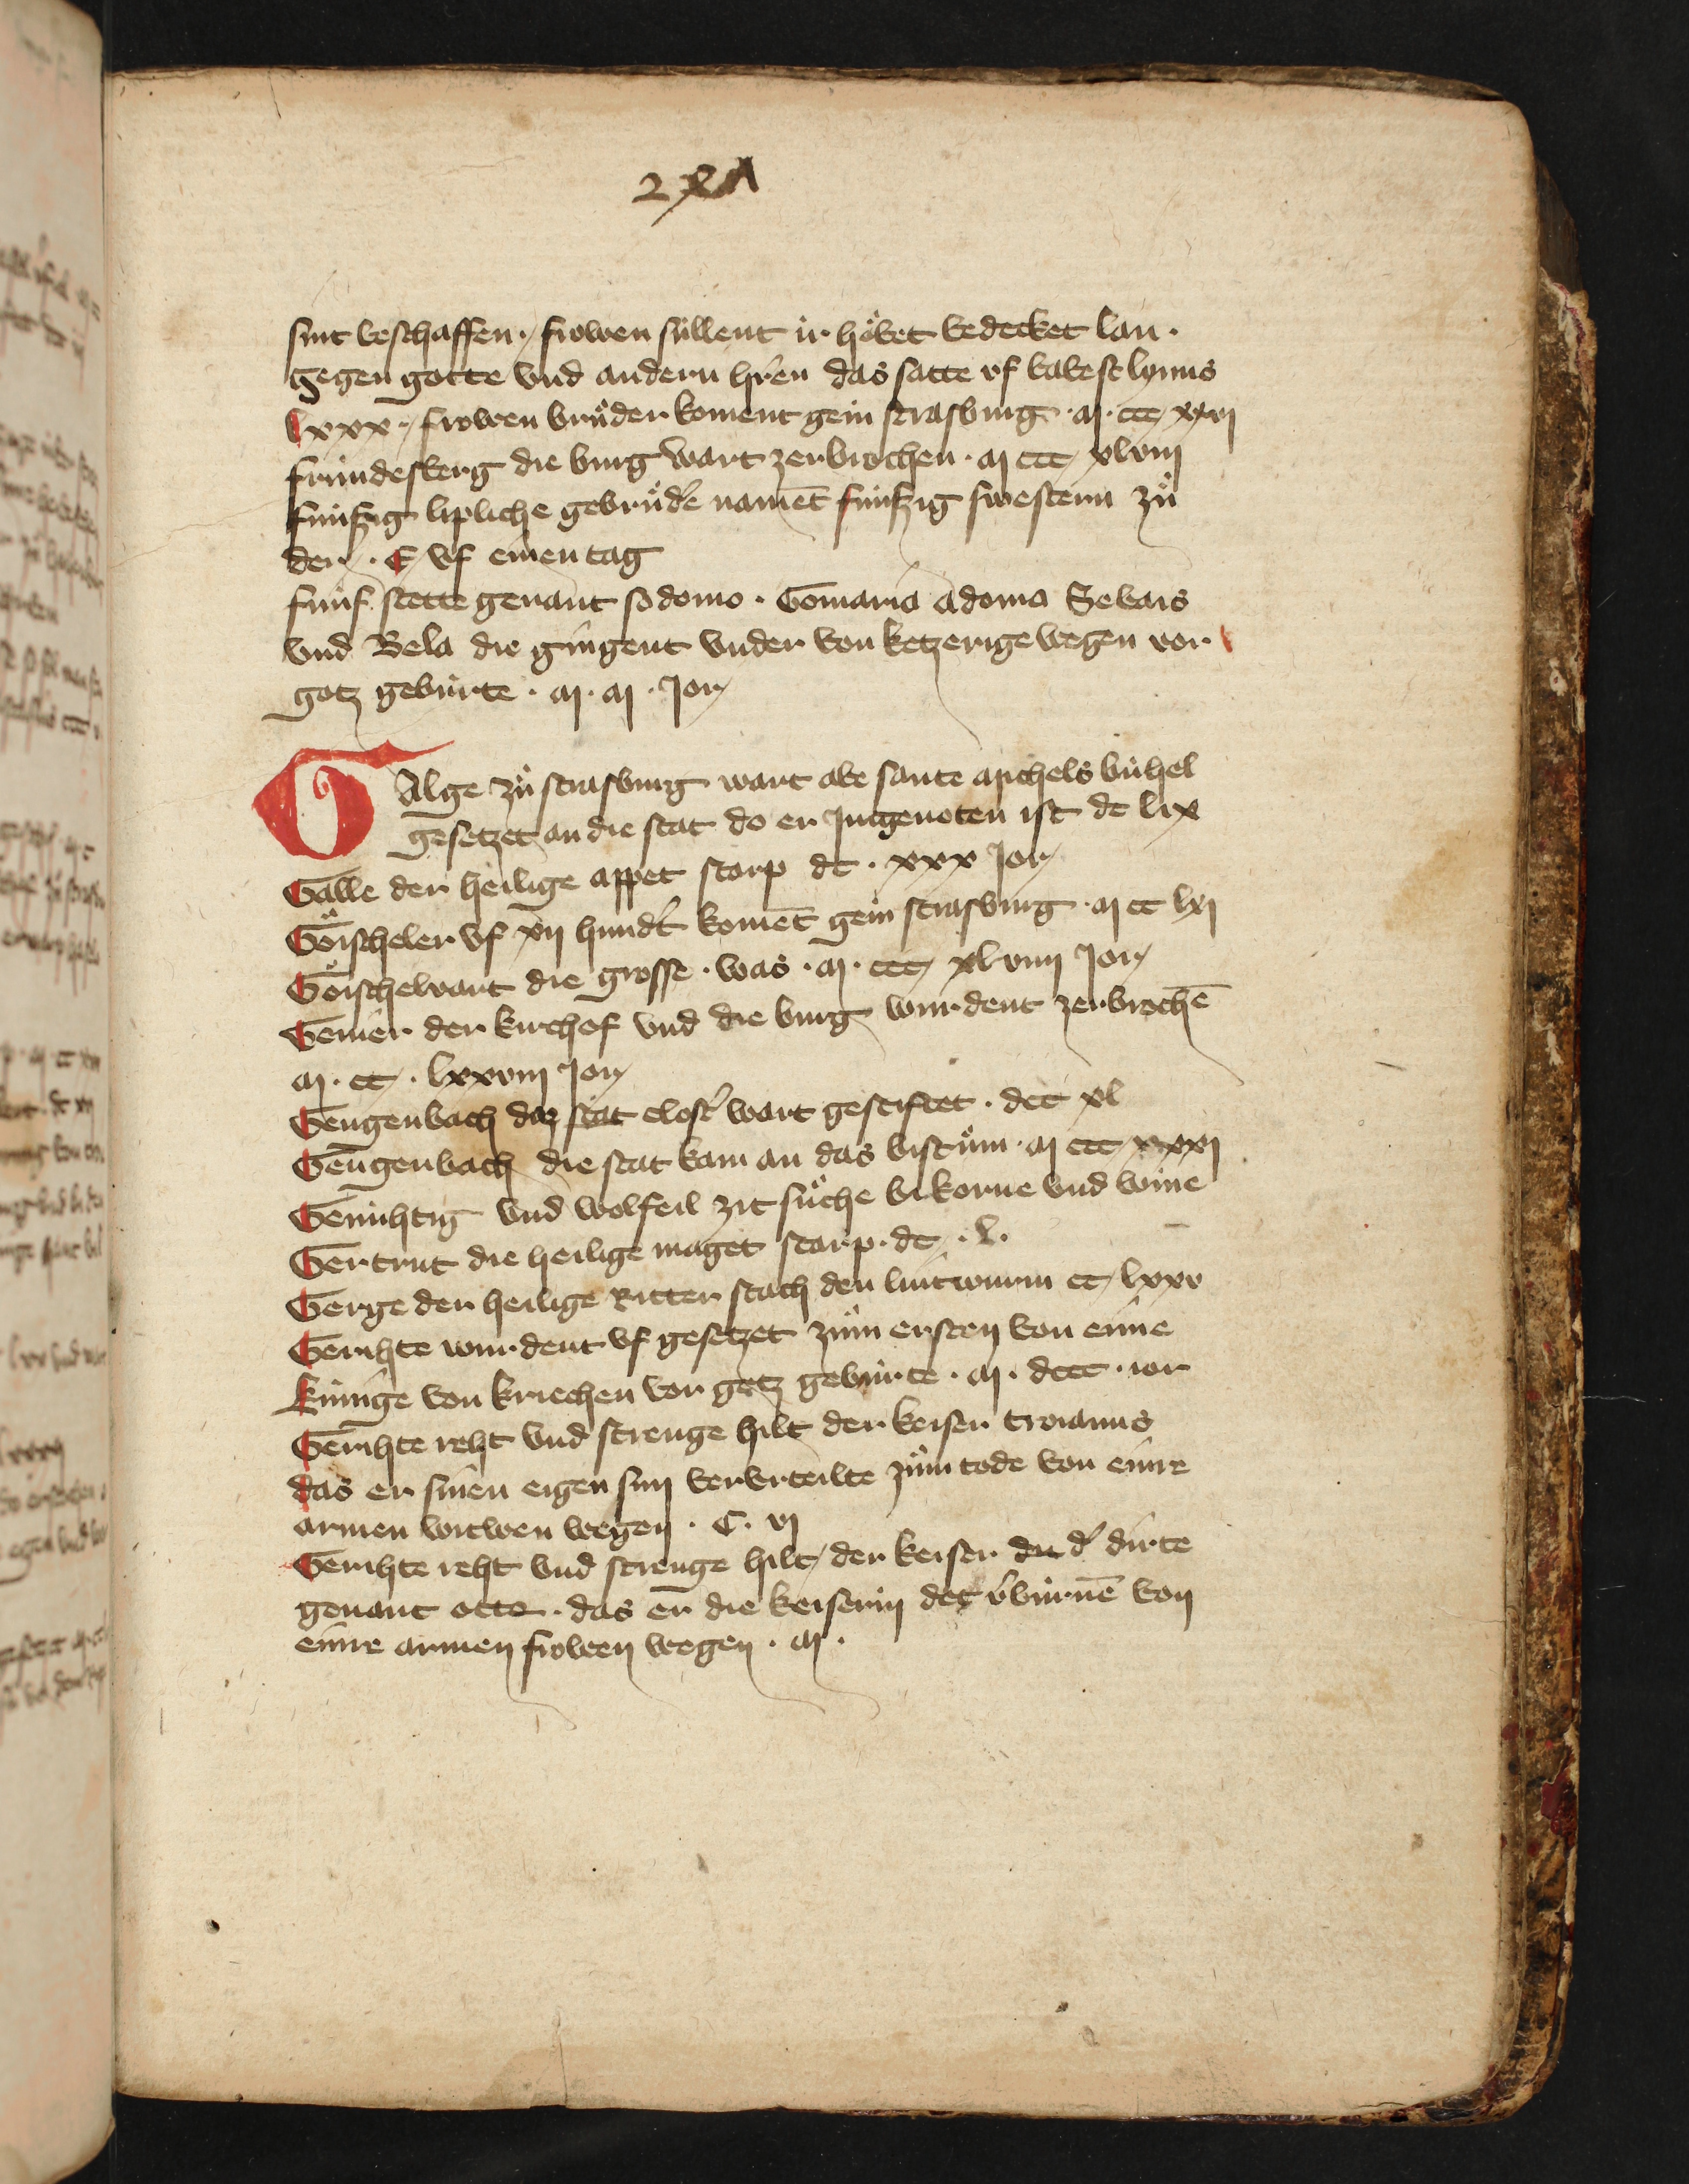 sint beschaffen · frowen süllent ir hoͤbet bedecket lan ·
gegen gotte vnd andern hr̄en das satte vf babest lynus
lxxx · frowen bruͤder koment gein strasburg · M · ccc xlvj
fründesberg die burg wart zerbrochen · M ccc xlviij
fünfzig lipliche gebruͤder namēt fünfzig swestern zuͦ
der · E vf einen tag
fünf stette genant sodomo · Gomaria adoma Sebois
vnd Bela die gingent vnder von ketzerige wegen vor
gotz gebürte · M · M · Jor
GAlge zuͦ strasburg wart abe sante Michels bühel
gesetzet an die stat do er Jngenoten ist dc lix
Galle der heilige appet starp dc · xxx Jor
Goͤischeler vf xij hundert komēt gein strasburg · M cc lxj
Goͤischelvart die grosse · was · M · ccc xlviiij Jor
Gemer der kirchof vnd die burg wurdent zerbrochē
M · cc · lxxviij Jor
Gengenbach daz closter wart gestiftet · dcc xl
Gengenbach die stat kam an das bistuͦm · M ccc xxxj
Genühtig vnd wolfeil zit suͦche bi korne vnd wine
Gertrut die heilige maget starp · dc · l ·
Gerge der heilige Ritter stach den lintwurm cc lxxv
Gerihte wurdent vf gesetzet zuͦm ersten von eime
künige von kriechen vor gotz gebürte · M · dccc · ior
Gerihte reht vnd strenge hilt der keiser troianus
das er sinen eigen sun verurteilte zuͦm tode von einre
armen witwen wegen · C · vj
Gerihte reht vnd strenge hilt der keiser der dirte
genant otto · das er die keiserin det v̄bürnē von
einre armen frowen wegen · M ·